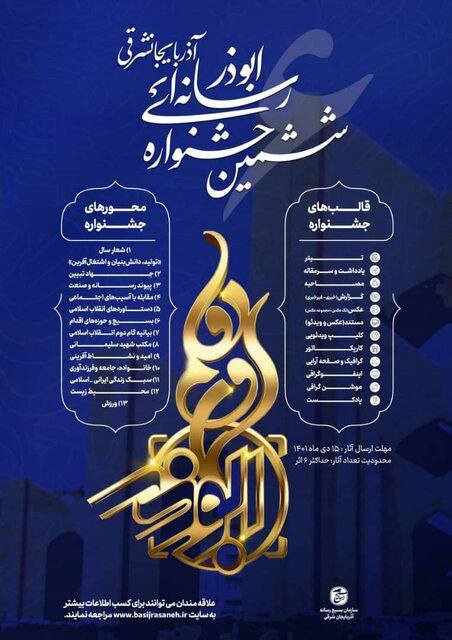 ششمین جشنواره
رسانه‌ای
ابوذر
آذربایجان‌شرقی
قالب‌های
جشنواره
تیتر
یادداشت و سرمقاله
مصاحبه
گزارش(خبری، غیرخبری)
عکس(تک عکس، مجموعه عکس)
مستند(عکس و ویدئو)
کلیپ ویدئویی
کاریکاتور
گرافیک و صفحه آرایی
اینفوگرافی
موشن گرافی
پادکست
محورهای
جشنواره
۱) شعار سال
«تولید، دانش‌بنیان و اشتغال‌آفرین»
۲) جهاد تبیین
۳) پیوند رسانه و صنعت
۴) مقابله با آسیب‌های اجتماعی
۵) دستاوردهای انقلاب اسلامی
۶) بسیج و حوزه‌های اقدام
۷) بیانیه گام دوم انقلاب اسلامی
۸) مکتب شهید سلیمانی
۹) امید و نشاط آفرینی
۱۰) خانواده، جامعه و فرزندآوری
۱۱) سبک زندگی ایرانی ـ اسلامی
۱۲) محیط زیست
۱۳) ورزش
مهلت ارسال آثار : ۱۵ دی ماه ۱۴۰۱
محدودیت تعداد آثار: حداکثر ۶ اثر
ابوذر
علاقه مندان می توانند برای کسب اطلاعات بیشتر
به سایت www.basijrasaneh.ir مراجعه نمایند.
سازمان بسیج رسانه
آذربایجان شرقی